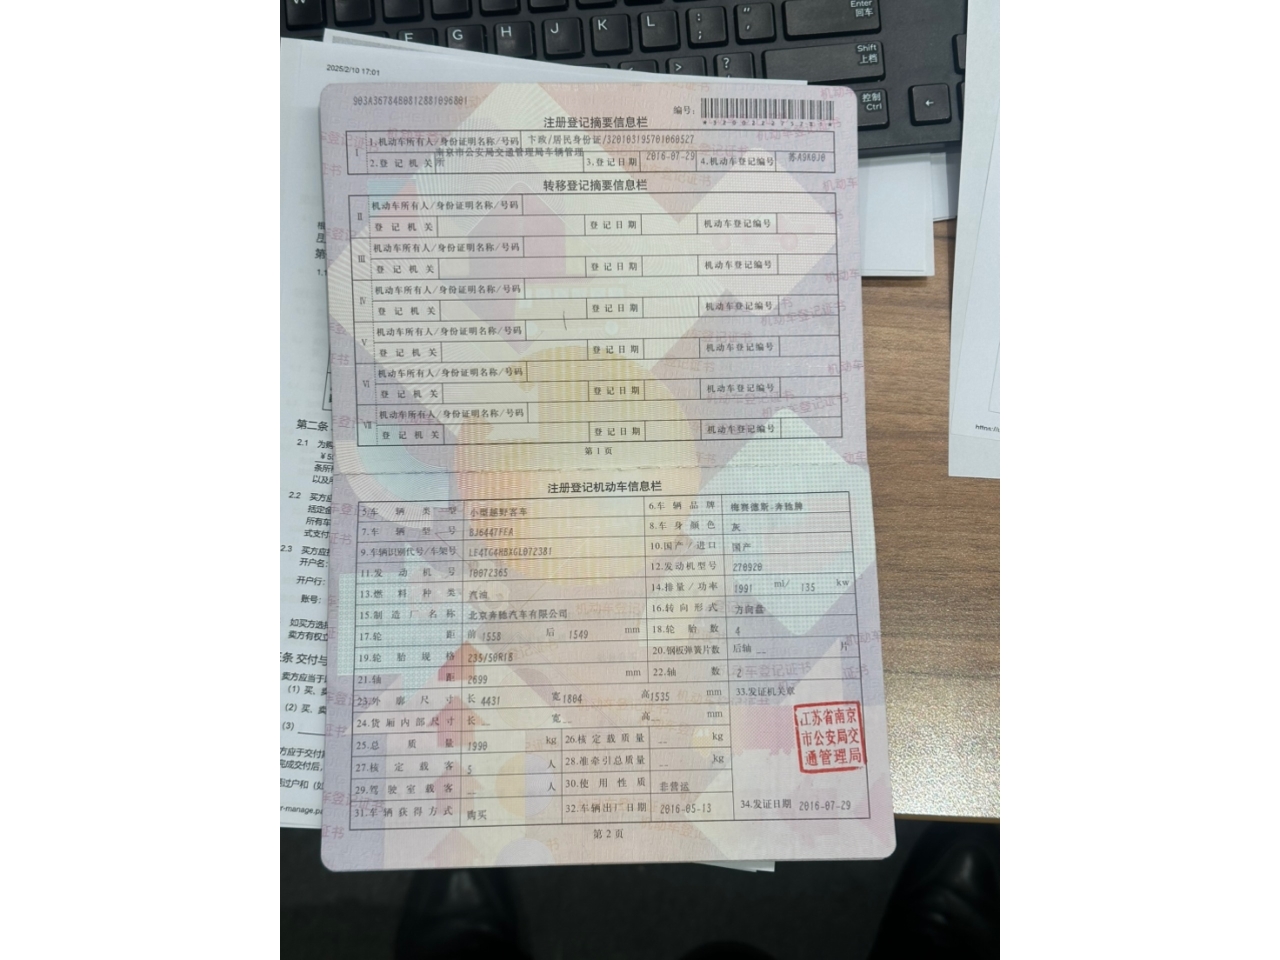 Enter
回车
F G H J K L
Shift
上档
控制
Ctrl
2025/2/10 17:01
编号:
注册登记摘要信息栏
I 1.机动车所有人/身份证明名称/号码
2.登记机关 南京市公安局交通管理局车辆管理所 3.登记日期 2016-07-29 4.机动车登记编号
转移登记摘要信息栏
II 机动车所有人/身份证明名称/号码
登记机关 登记日期 机动车登记编号
III 机动车所有人/身份证明名称/号码
登记机关 登记日期 机动车登记编号
IV 机动车所有人/身份证明名称/号码
登记机关 登记日期 机动车登记编号
V 机动车所有人/身份证明名称/号码
登记机关 登记日期 机动车登记编号
VI 机动车所有人/身份证明名称/号码
登记机关 登记日期 机动车登记编号
VII 机动车所有人/身份证明名称/号码
登记机关 登记日期 机动车登记编号
第1页
注册登记机动车信息栏
5.车辆类型 小型越野客车 6.车辆品牌 梅赛德斯-奔驰牌
7.车辆型号 BJ6447FEA 8.车身颜色 灰
9.车辆识别代号/车架号 10.国产/进口 国产
11.发动机号 10072365 12.发动机型号 270920
13.燃料种类 汽油 14.排量/功率 1991 ml/ 135 kw
15.制造厂名称 北京奔驰汽车有限公司 16.转向形式 方向盘
17.轮距 前 1558 后 1549 mm 18.轮胎数 4
19.轮胎规格 235/50R18 20.钢板弹簧片数 后轴 __ 片
21.轴距 2699 mm 22.轴数 2
23.外廓尺寸 长 4431 宽 1804 高 1535 mm 33.发证机关章
24.货厢内部尺寸 长 __ 宽 __ 高 __ mm
25.总质量 1990 kg 26.核定载质量 __ kg
27.核定载客 5 人 28.准牵引总质量 __ kg
29.驾驶室载客 __ 人 30.使用性质 非营运
31.车辆获得方式 购买 32.车辆出厂日期 2016-05-13 34.发证日期 2016-07-29
江苏省南京
市公安局交
通管理局
第2页
第二条
2.1
2.2 买方应
式支付
2.3 买方应
开户名:
开户行:
账号:
如买方选择
卖方有权立
条 交付与
卖方应当于
(1)买、卖
(2)买、卖
(3)
方应于交付
完成交付后,
r-manage.pa
https://